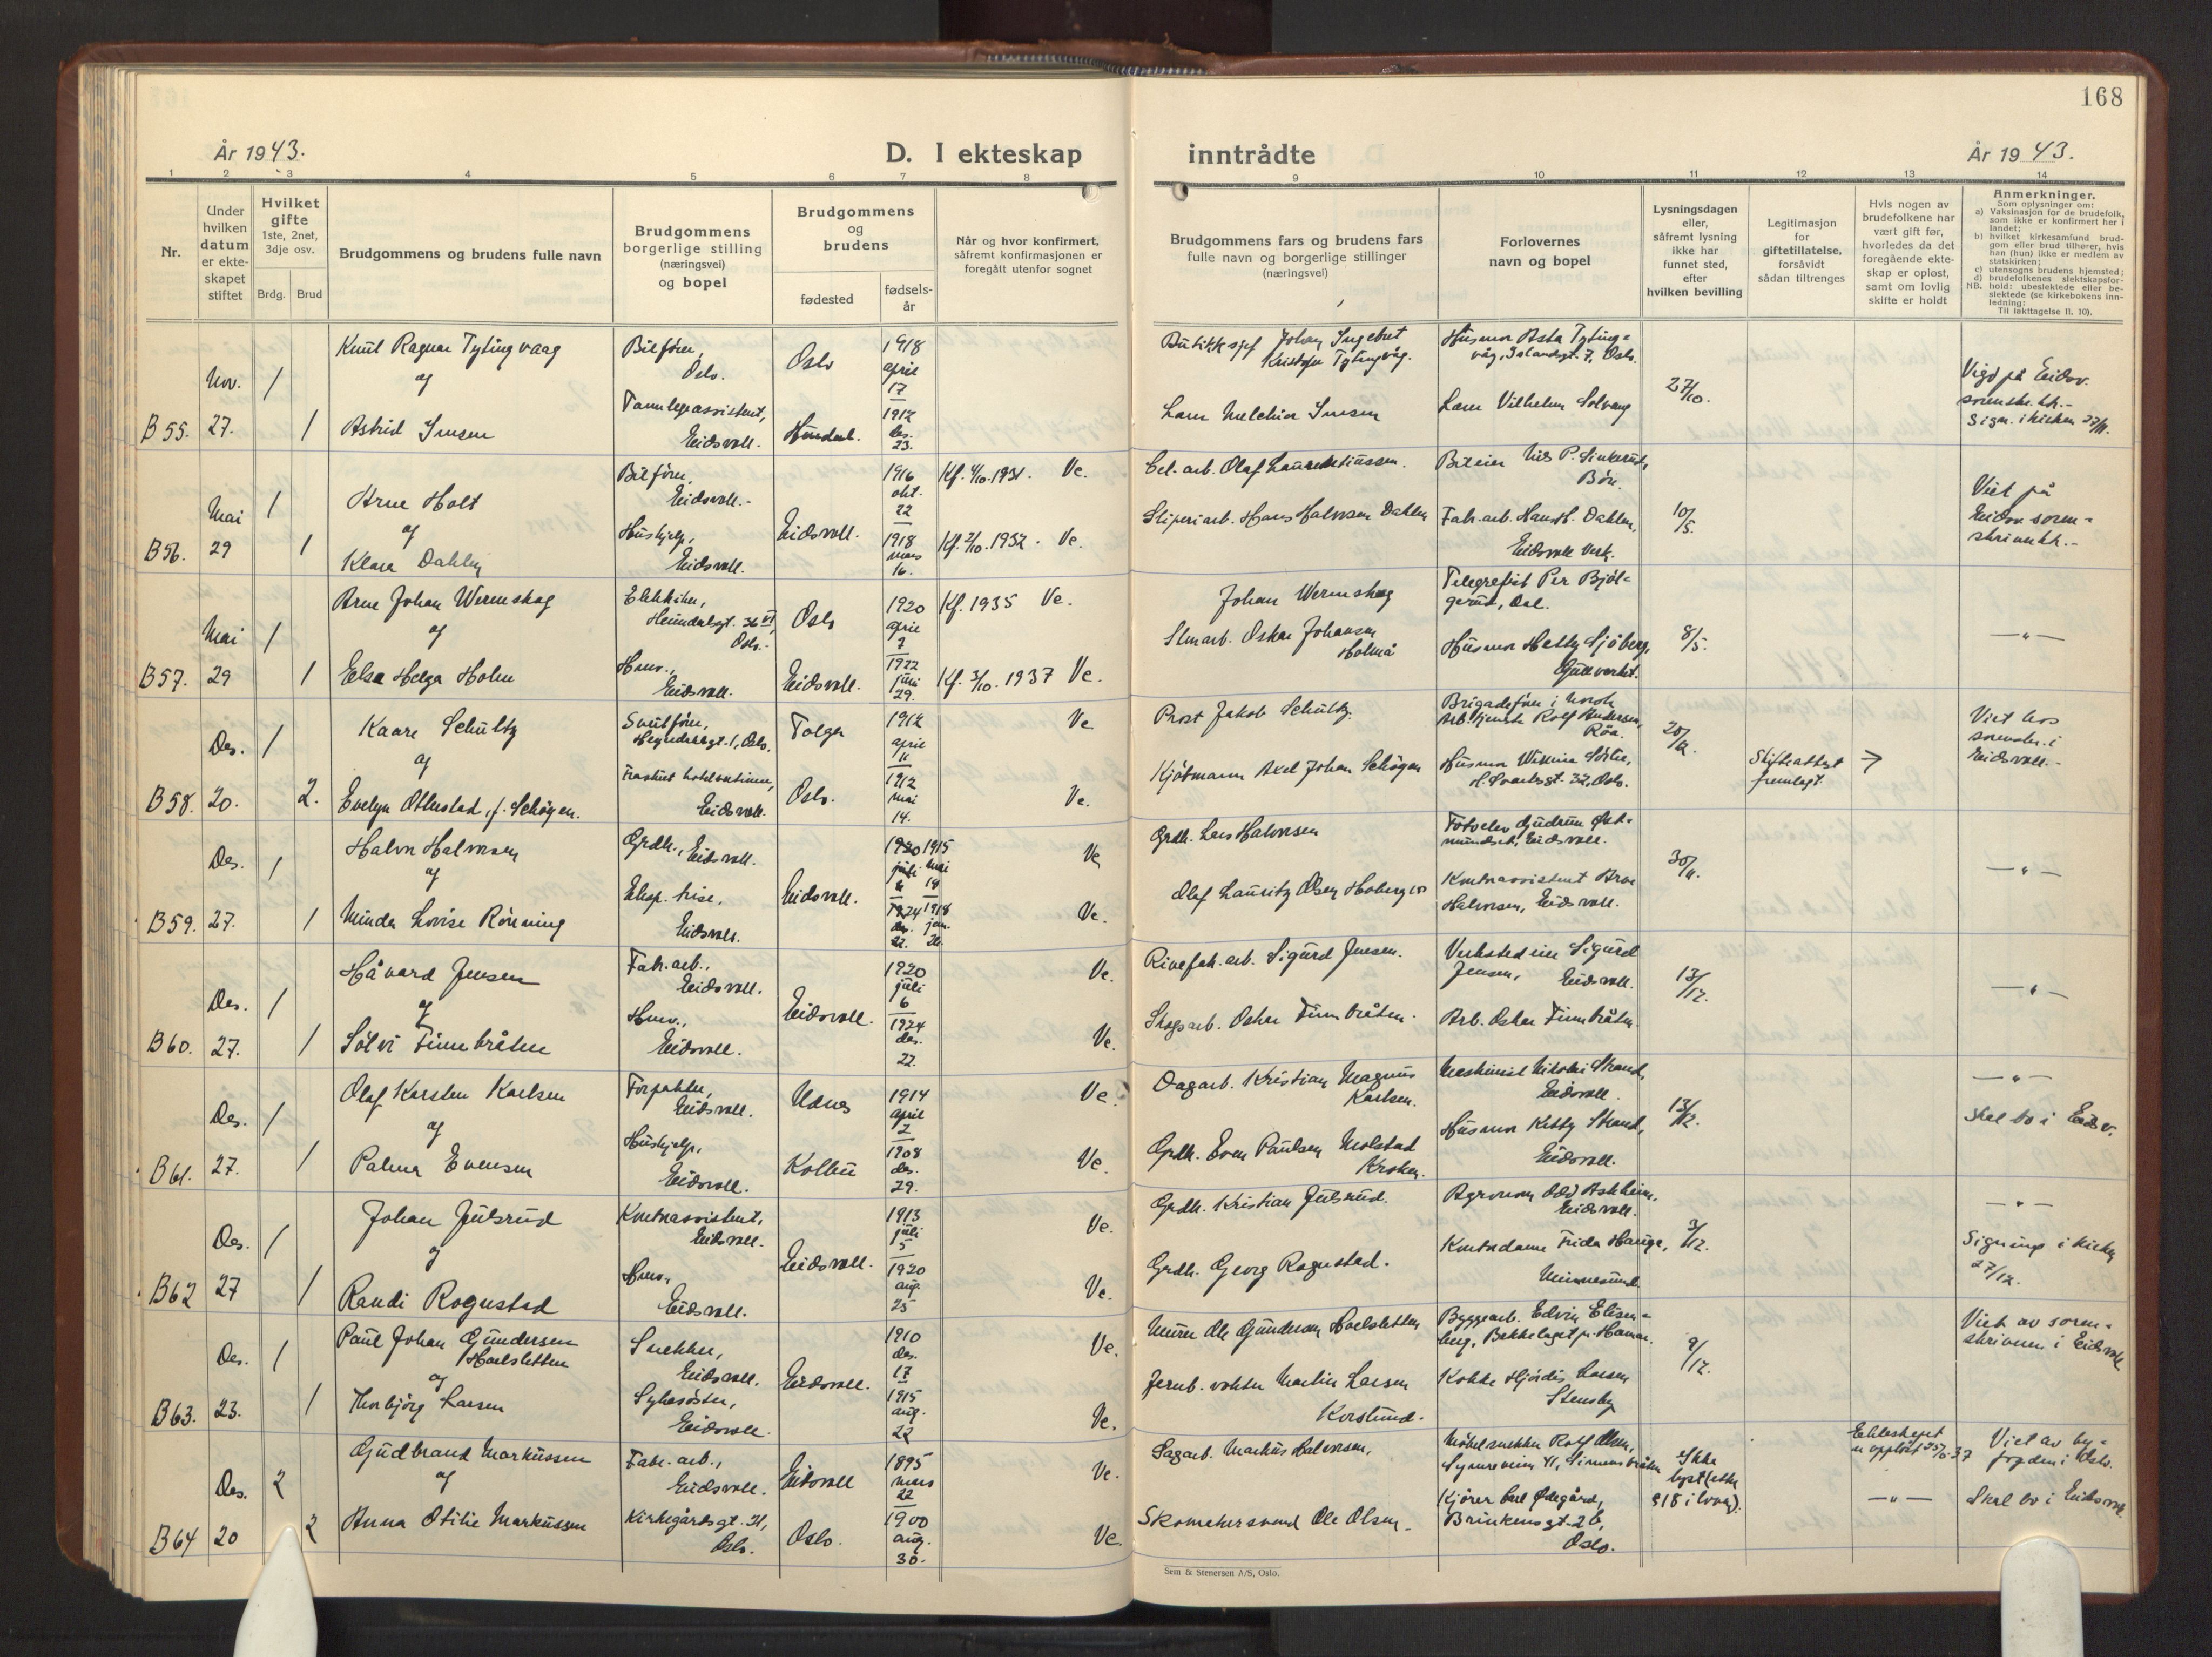 168
År 1943.
D. I ekteskap inntrådte
År 1943.
1 2 3 4 5 6 7 8 9 10 11 12 13 14
Nr.
Under
hvilken
datum
er ekte-
skapet
stiftet
Hvilket
gifte
1ste, 2net,
3dje osv.
Brdg. Brud
Brudgommens og brudens fulle navn
Brudgommens
borgerlige stilling
(næringsvei)
og bopel
Brudgommens
og
brudens
fødested
fødsels-
år
Når og hvor konfirmert,
såfremt konfirmasjonen er
foregått utenfor sognet
Brudgommens fars og brudens fars
fulle navn og borgerlige stillinger
(næringsvei)
Forlovernes
navn og bopel
Lysningsdagen
eller,
såfremt lysning
ikke har
funnet sted,
efter
hvilken bevilling
Legitimasjon
for
giftetillatelse,
forsåvidt
sådan tiltrenges
Hvis nogen av
brudefolkene har
vært gift før,
hvorledes da det
foregående ekte-
skap er opløst,
samt om lovlig
skifte er holdt
Anmerkninger.
Som oplysninger om:
a) Vaksinasjon for de brudefolk,
som ikke er konfirmert her i
landet;
b) hvilket kirkesamfund brud-
gom eller brud tilhører, hvis
han (hun) ikke er medlem av
statskirken;
c) utensogns brudens hjemsted;
d) brudefolkenes slektskapsfor-
hold: ubeslektede eller be-
slektede (se kirkebokens inn-
ledning:
NB. Til iakttagelse II. 10).
B 55.
Nov.
27.
1
1
Knut Ragnar Tytingvaag
og
Astrid Jensen
Bilfører,
Oslo.
Tannlegeassistent,
Eidsvoll.
Oslo
Hurdal.
1918
april
17
1912
des.
23.
Butikksjef Johan Ingebret
Kristofer Tytingvåg.
Lars Melchior Jensen
Husmor Asta Tyting-
våg, Islandsgt. 7, Oslo.
Lars Vilhelm Solvang
27/10.
Vigd på Eidsv.
sorenskr.kk.-
Sign. i kirken 27/11.
B 56.
Mai
29
1
1
Arne Holt
og
Klara Dahlen
Bilfører,
Eidsvoll.-
Hushjelp,
Eidsvoll.
Eidsvoll.
1916
okt.
22
1918
mars
16.
Kf. 4/10.1931. Ve.
Kf. 2/10.1932. Ve.
Cel. arb. Olaf Laurentiussen.
Sliperiarb. Hans Halvorsen Dahlen
Bileier Nils P. Sinkerud,
Bön.
Fabr.arb. Hans H. Dahlen,
Eidsvoll Verk.
10/5.
Viet på
Eidsv. soren-
skriverkk.-
B 57.
Mai
29
1
1
Arne Johan Wermskog
og
Elsa Helga Holm
Elektriker,
Heimdalsgt. 36 VI,
Oslo.-
Hmv.,
Eidsvoll.
Oslo
Eidsvoll.
1920
april
7
1922
juni
29.
Kf. 1935 Ve.
Kf. 3/10. 1937 Ve.
Johan Wermskog
Stenarb. Oskar Johansen
Holmå
Telegrafist Per Bjöl-
gerud, Osl.
Husmor Hetty Sjöberg,
Gullverket.
8/5.
— „ —
B 58.
Des.
20.
1
2.
Kaare Schultz
og
Evelyn Ottestad, f. Schögen.
Sveitförer,
Hegdehaugt. 1, Oslo.
Eidsvoll.
Tolga
Oslo.
1912
april
11
1912
mai
14.
Ve
Ve.
Prost Jakob Schultz.
Kjöbmann Axel Johan Schögen
Brigadefører i norsk
Arb.tjeneste Rolf Andersen,
Röa.
Oslo.
Skifteattest
fremlagt.
Viet hos
sorenskr. i
Eidsvoll.-
B 59.
Des.
27.
1
1
Halvor Halvorsen
og
Minda Lovise Rönning
Grdb., Eidsvoll.
Eksp. trise,
Eidsvoll.
Eidsvoll.
1920 1915
juli mai
6 19
1924 1918
des. jan.
22. 26.
Ve
Ve.
Grdb. Lars Halvorsen
Olaf Lauritz Olsen Hoberg
Eidsvoll.
Kontorassistent Arve
Halvorsen, Eidsvoll.
30/11.
— „ —
B 60.
Des.
27.
1
1
Håvard Jensen
og
Sölvi Finnbråten
Fabr.arb.,
Eidsvoll.
Hmv.,
Eidsvoll.
Eidsvoll.
1920
juli
6
1924
des.
22.
Ve.
Ve.
Rivefab.arb. Sigurd Jensen.
Skogsarb. Oskar Finnbråten.
Verkstedeier Sigurd
Jensen, Eidsvoll.
Arb. Oskar Finnbråten.
13/12.
— „ —
B 61.
Des.
27.
1
1
Olaf Karsten Karlsen
og
Palma Evensen
Forpakter,
Eidsvoll.
Hushjelp,
Eidsvoll.
Udnes
Kolbu
1914
april
2
1908
des.
29.
Ve.
Ve.
Dagarb. Kristian Magnus
Karlsen.
Grdb. Even Paulsen Molstad
Kroken.
Maskinist Nikolai Strand,
Eidsvoll.
Husmor Ketty Strand,
Eidsvoll.
13/12.
— „ —
skal bo i Eidsv.
B 62
Des.
27
1
1
Johan Julsrud
og
Randi Rognstad
Kontorassistent,
Eidsvoll.
Hmv.,
Eidsvoll.
Eidsvoll.
1913
juli
5
1920
aug.
25
Ve.
Ve.
Grdb. Kristian Julsrud.
Grdb. Georg Rognstad.
Agronom Odd Askheim,
Eidsvoll.
Kontordame Frida Hauge,
Minnesund.
3/12.
— „ —
Signing i kirken
27/12.
B 63.
Des.
23.
1
1
Paul Johan Gundersen
Hoelsletten
og
Torbjörg Larsen
Snekker,
Eidsvoll.
Sykesöster,
Eidsvoll.
Eidsvoll.
1910
des.
17
1915
aug.
22
Ve.
Ve.
Murer Ole Gundersen Hoelsletten
Jernb. vokter Martin Larsen
Korslund.
Byggearb. Edvin Elisen-
berg, Bekkelaget p. Hamar.
Kokke Hjördis Larsen
Stensby
9/12.
Viet av soren-
skriveren i Eidsvoll
B 64
Des.
20
2
2
Gudbrand Markussen
og
Anna Otilie Markussen
Fabr.arb.,
Eidsvoll.
Kirkegårdsgt. 21,
Oslo.
Eidsvoll
Oslo.
1895
mars
22
1900
aug.
30.
Ve.
Ve.
Sagarb. Markus Halvorsen,
Skomakersvend Ole Olsen
Möbelsnekker Rolf Olsen,
Kjörer Carl Ödegård,
Brinkensgt. 2b,
Oslo.
Ikke
lyst (etter
§ 18 i loven).
Ekteskapet
er opplöst 25/6-37
— „ —
Viet av by-
fogden i Oslo.
Skal bo i Eidsvoll
Sem & Stenersen A/S, Oslo.